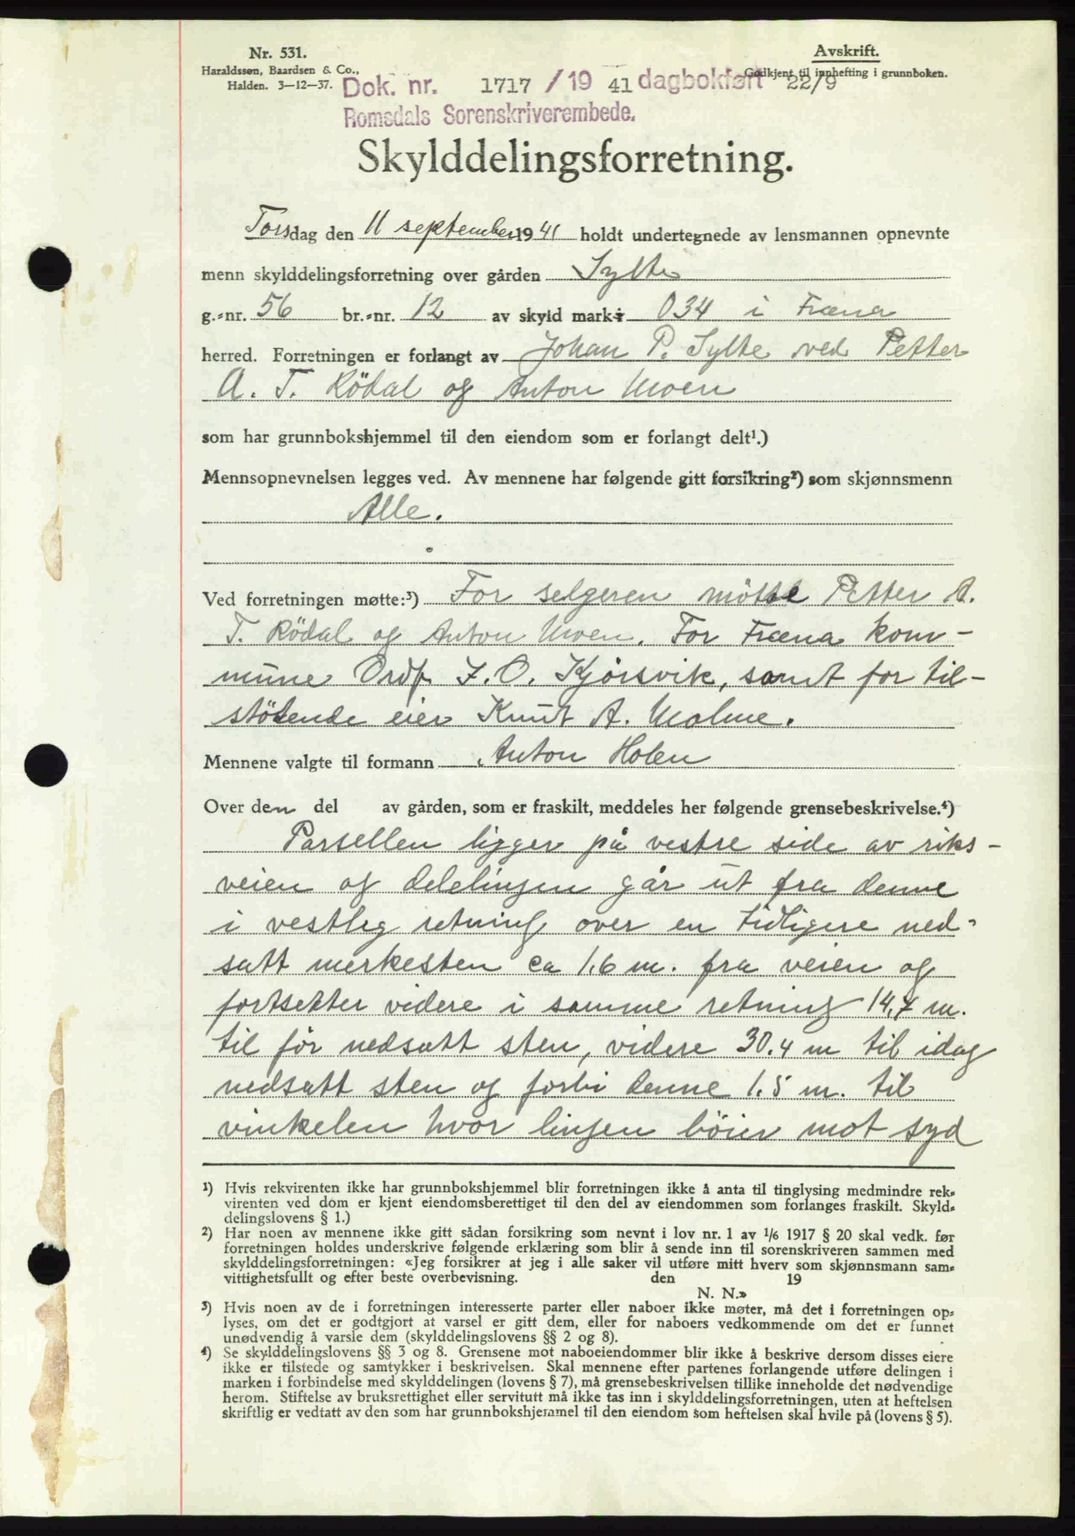 Nr. 531.
Haraldssøn, Baardsen & Co.,
Halden. 3—12—37.
Avskrift.
Godkjent til innhefting i grunnboken.
Dok. nr. 1717 / 19 41 dagbokført 22/9
Romsdals Sorenskriverembede.
Skylddelingsforretning.
Torsdag den 11 september 1941 holdt undertegnede av lensmannen opnevnte
menn skylddelingsforretning over gården Sylte
g.-nr. 56 br.-nr. 12 av skyld mark 034 i Fræna
herred. Forretningen er forlangt av Johan P. Sylte ved Petter
A. T. Rödal og Anton Moen
som har grunnbokshjemmel til den eiendom som er forlangt delt¹.)
Mennsopnevnelsen legges ved. Av mennene har følgende gitt forsikring²) som skjønnsmenn
Alle.
Ved forretningen møtte:³) For selgeren mötte Petter A.
T. Rödal og Anton Moen. For Fræna kom-
mune Ordf. I. O. Kjörsvik, samt for til-
stötende eier Knut A. Malme.
Mennene valgte til formann Anton Holen
Over den del av gården, som er fraskilt, meddeles her følgende grensebeskrivelse.⁴)
Parsellen ligger på vestre side av riks-
veien og delelinjen går ut fra denne
i vestleg retning over en tidligere ned-
satt merkesten ca 1.6 m. fra veien og
fortsetter videre i samme retning 14,7 m.
til för nedsatt sten, videre 30.4 m til idag
nedsatt sten og forbi denne 1.5 m. til
vinkelen hvor linjen böier mot syd
¹) Hvis rekvirenten ikke har grunnbokshjemmel blir forretningen ikke å anta til tinglysing medmindre rek-
virenten ved dom er kjent eiendomsberettiget til den del av eiendommen som forlanges fraskilt. Skyld-
delingslovens § 1.)
²) Har noen av mennene ikke gitt sådan forsikring som nevnt i lov nr. 1 av 1/6 1917 § 20 skal vedk. før
forretningen holdes underskrive følgende erklæring som blir å sende inn til sorenskriveren sammen med
skylddelingsforretningen: «Jeg forsikrer at jeg i alle saker vil utføre mitt hverv som skjønnsmann sam-
vittighetsfullt og efter beste overbevisning. den 19
N. N.»
³) Hvis noen av de i forretningen interesserte parter eller naboer ikke møter, må det i forretningen op-
lyses, om det er godtgjort at varsel er gitt dem, eller for naboers vedkommende om det er funnet
unødvendig å varsle dem (skylddelingslovens §§ 2 og 8).
⁴) Se skylddelingslovens §§ 3 og 8. Grensene mot naboeiendommer blir ikke å beskrive dersom disses eiere
ikke er tilstede og samtykker i beskrivelsen. Skal mennene efter partenes forlangende utføre delingen i
marken i forbindelse med skylddelingen (lovens § 7), må grensebeskrivelsen tillike inneholde det nødvendige
herom. Stiftelse av bruksrettighet eller servitutt må ikke tas inn i skylddelingsforretningen, uten at heftelsen
skriftlig er vedtatt av den som har grunnbokshjemmel til den eiendom som heftelsen skal hvile på (lovens § 5).